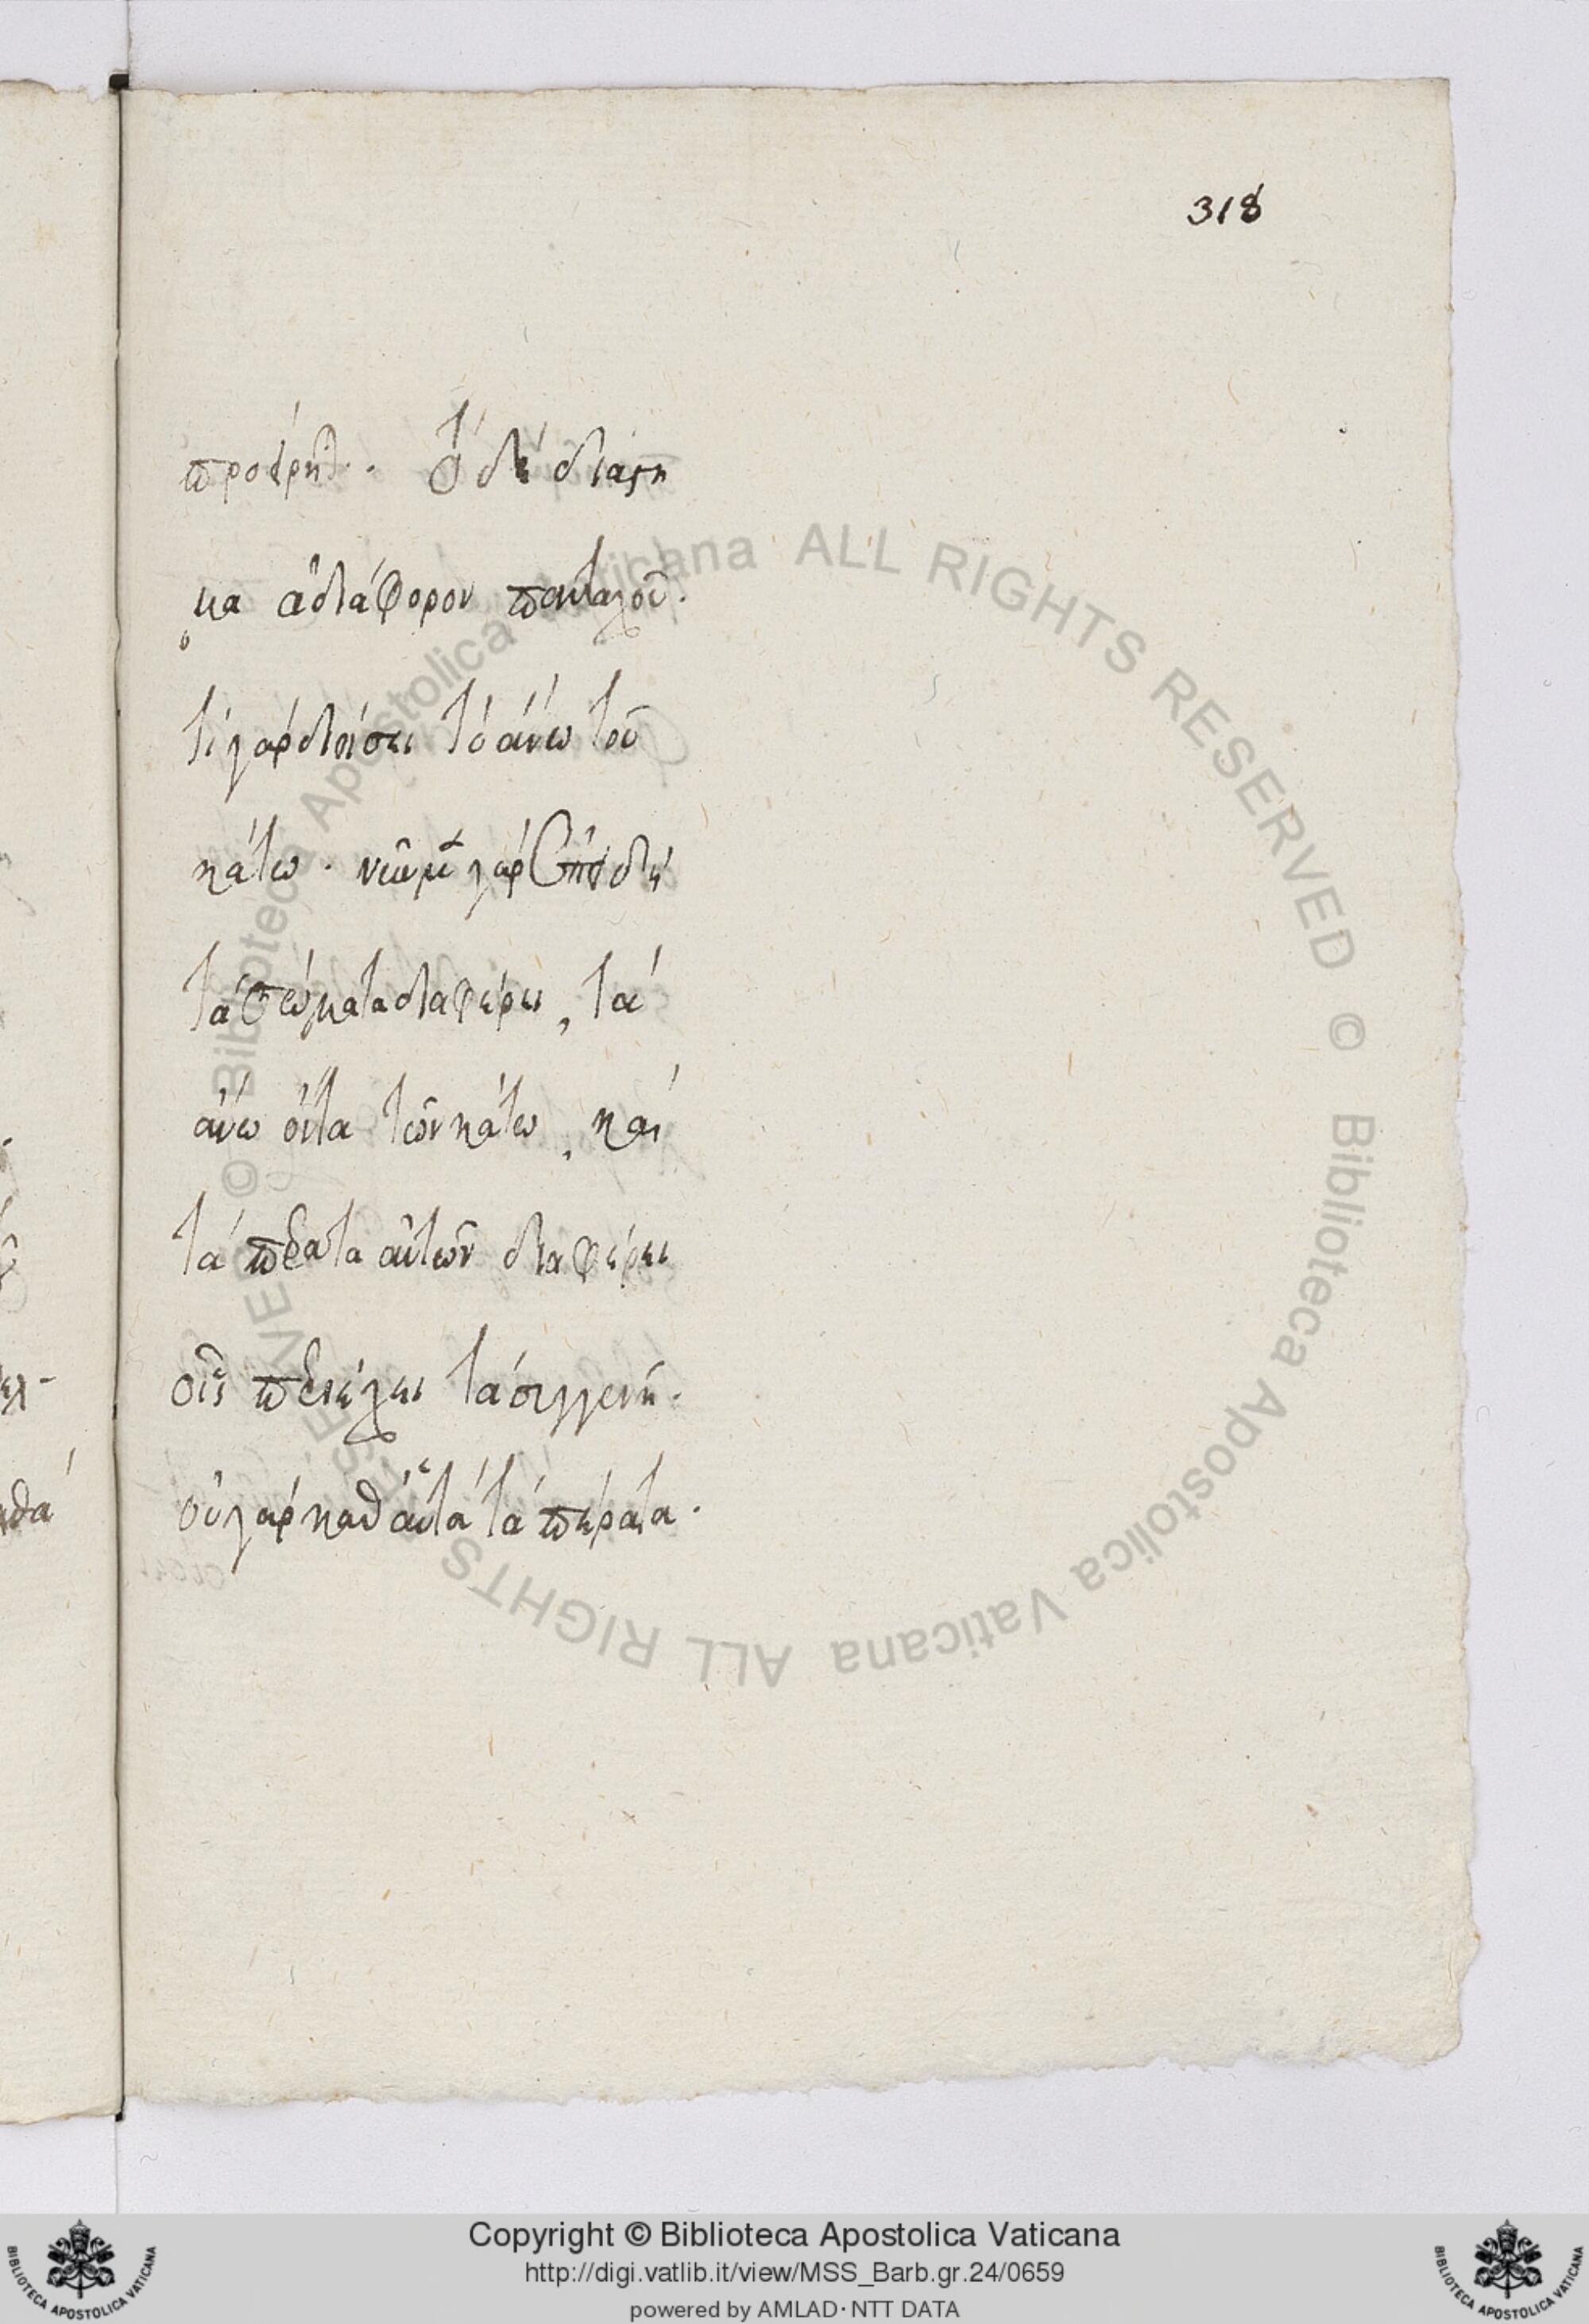 318
προείρηται. τὸ δὲ διάστη
μα ἀδιάφορον πανταχοῦ.
τί γὰρ διοίσει τὸ ἄνω τοῦ
κάτω. νῦν μὲν γὰρ ἐπειδὴ
τὰ σώματα διαφέρει, τὰ
ἄνω ὄντα τῶν κάτω, καὶ
τὰ πέρατα αὐτῶν διαφέρει
οἷς περιέχει τὰ συγγενῆ.
οὐ γὰρ καθ' αὑτὰ τὰ πέρατα.
θα
Biblioteca Apostolica Vaticana ALL RIGHTS RESERVED © Biblioteca Apostolica Vaticana ALL RIGHTS RESERVED ©
Copyright © Biblioteca Apostolica Vaticana
http://digi.vatlib.it/view/MSS_Barb.gr.24/0659
powered by AMLAD · NTT DATA
BIBLIOTECA APOSTOLICA VATICANA
BIBLIOTECA APOSTOLICA VATICANA